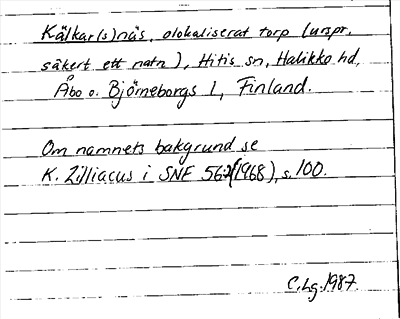 Kälkar(s)näs, olokaliserat torp (urspr.
säkert ett natn), Hitis sn, Halikko hd,
Åbo o. Björneborgs l, Finland.
Om namnets bakgrund se
K. Zilliacus i SNF 56 (1968), s. 100.
C. Lg. 1987